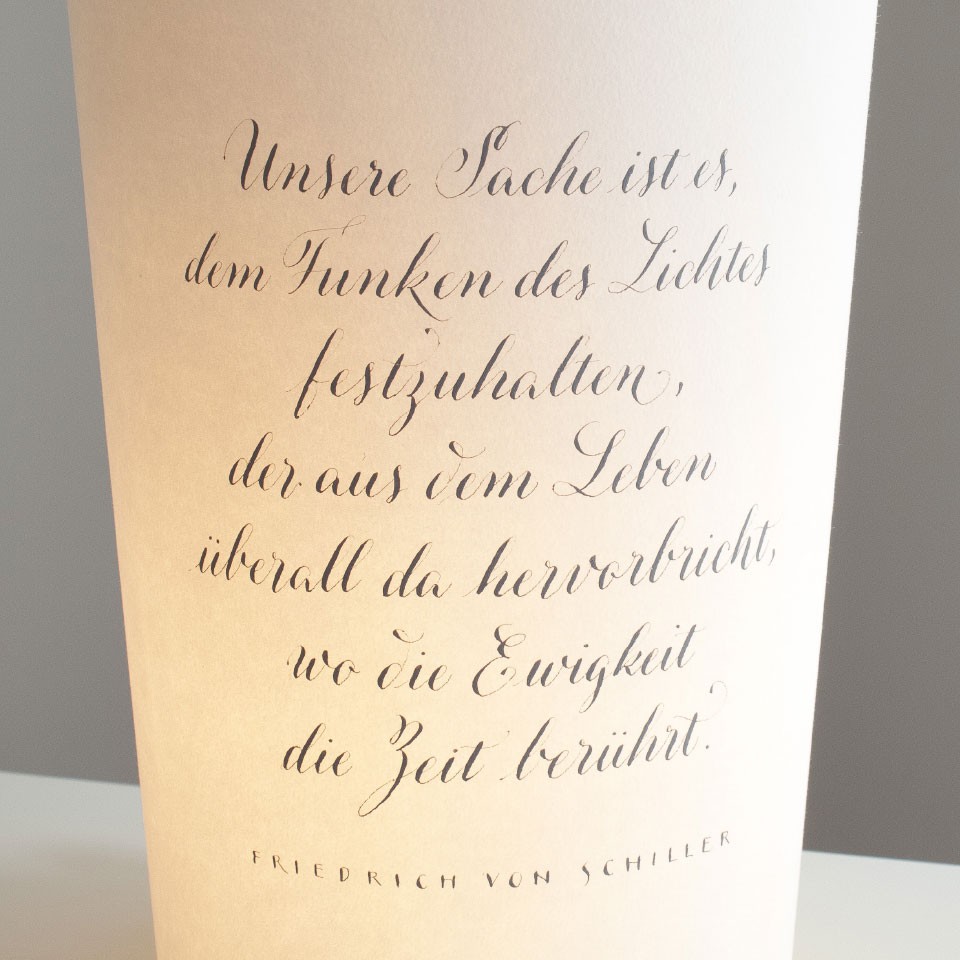 Unsere Sache ist es,
dem Funken des Lichtes
festzuhalten,
der aus dem Leben
überall da hervorbricht,
wo die Ewigkeit
die Zeit berührt.
FRIEDRICH VON SCHILLER